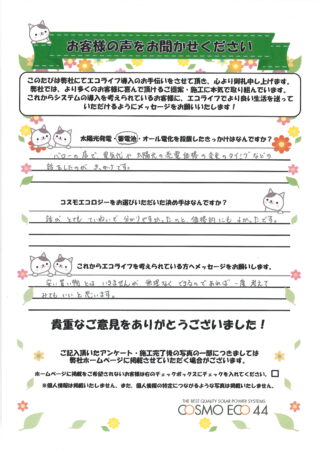 お客様の声をお聞かせください
このたびは弊社にてエコライフ導入のお手伝いをさせて頂き、心より御礼申し上げます。
弊社では、より多くのお客様に喜んで頂けるご提案・施工に本気で取り組んでいます。
これからシステムの導入を考えられているお客様に、エコライフでより良い生活を送って
いただけるようにメッセージをお願いします！
太陽光発電・蓄電池・オール電化を設置したきっかけはなんですか？
バローの店で 電気代や 太陽光の売電価格の変更のタイミングなどの
話をしたのが きっかけです。
コスモエコロジーをお選びいただいた決め手はなんですか？
話が とても ていねいで 分かりやすかったのと、価格的にも よかったです。
これからエコライフを考えられている方へメッセージをお願いします。
安い買い物とは いきませんが 無理なく できるのであれば 一度 考えて
みても いいと思います。
貴重なご意見をありがとうございました！
ご記入頂いたアンケート・施工完了後の写真の一部につきましては
弊社ホームページに掲載させていただく場合がございます。
ホームページに掲載をご希望されないお客様は右のチェックボックスにチェックを入れてください。
※個人情報は掲載いたしません。また、個人情報の特定につながるような写真は掲載いたしません。
THE BEST QUALITY SOLAR POWER SYSTEMS
COSMO ECO 44